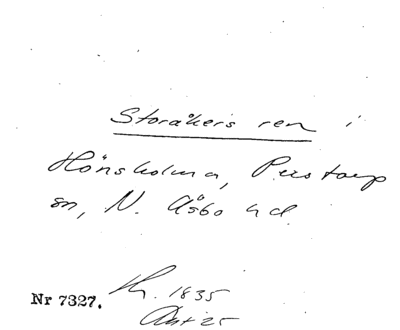 Storåkers ren i
Hönsholma, Perstorp
sn, N. Åsbo hd.
Nr 7327. 1835
Akt 25